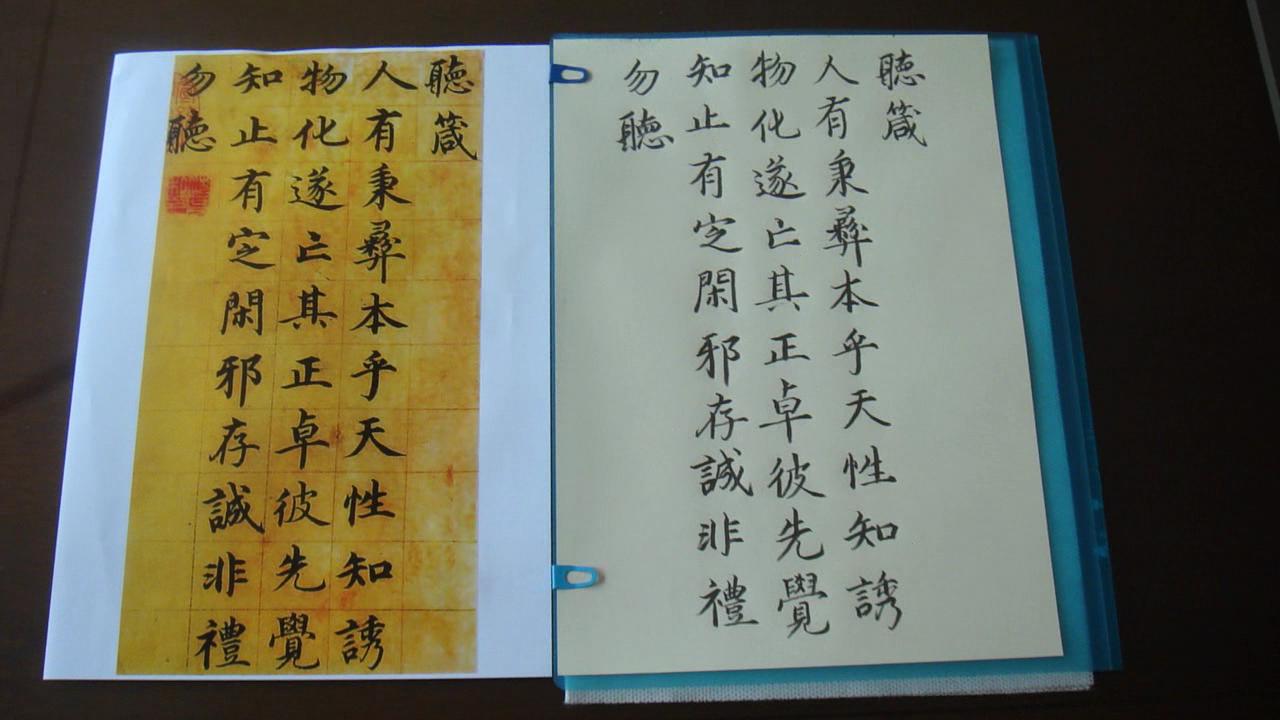 聽箴
人有秉彞本乎天性知誘
物化遂亡其正卓彼先覺
知止有定閑邪存誠非禮
勿聽
聽箴
人有秉彞本乎天性知誘
物化遂亡其正卓彼先覺
知止有定閑邪存誠非禮
勿聽